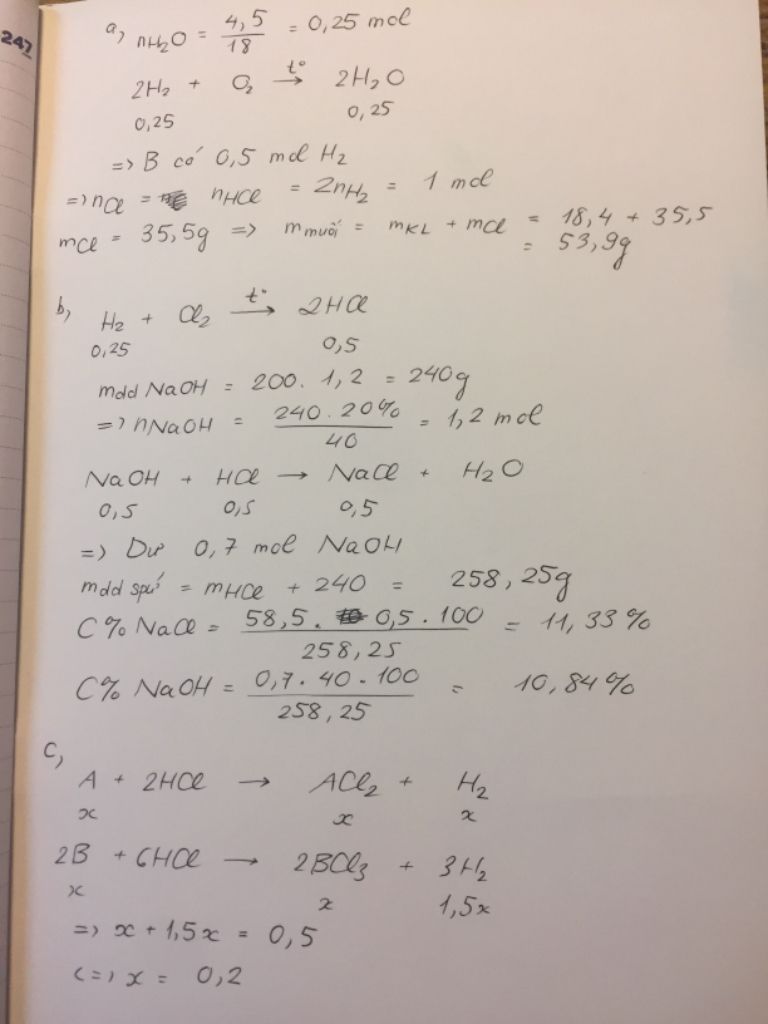 247
a, nH₂O = 4,5/18 = 0,25 mol
2H₂ + O₂ →(t°) 2H₂O
0,25 0,25
=> B có 0,5 mol H₂
=> nCl = nHCl = 2nH₂ = 1 mol
mCl = 35,5g => mmuối = mKL + mCl = 18,4 + 35,5
= 53,9g
b, H₂ + Cl₂ →(t°) 2HCl
0,25 0,5
mdd NaOH = 200 . 1,2 = 240g
=> nNaOH = 240 . 20%/40 = 1,2 mol
NaOH + HCl → NaCl + H₂O
0,5 0,5 0,5
=> Dư 0,7 mol NaOH
mdd spứ = mHCl + 240 = 258,25g
C% NaCl = 58,5 . 0,5 . 100/258,25 = 11,33%
C% NaOH = 0,7 . 40 . 100/258,25 = 10,84%
c,
A + 2HCl → ACl₂ + H₂
x x x
2B + 6HCl → 2BCl₃ + 3H₂
x x 1,5x
=> x + 1,5x = 0,5
<=> x = 0,2